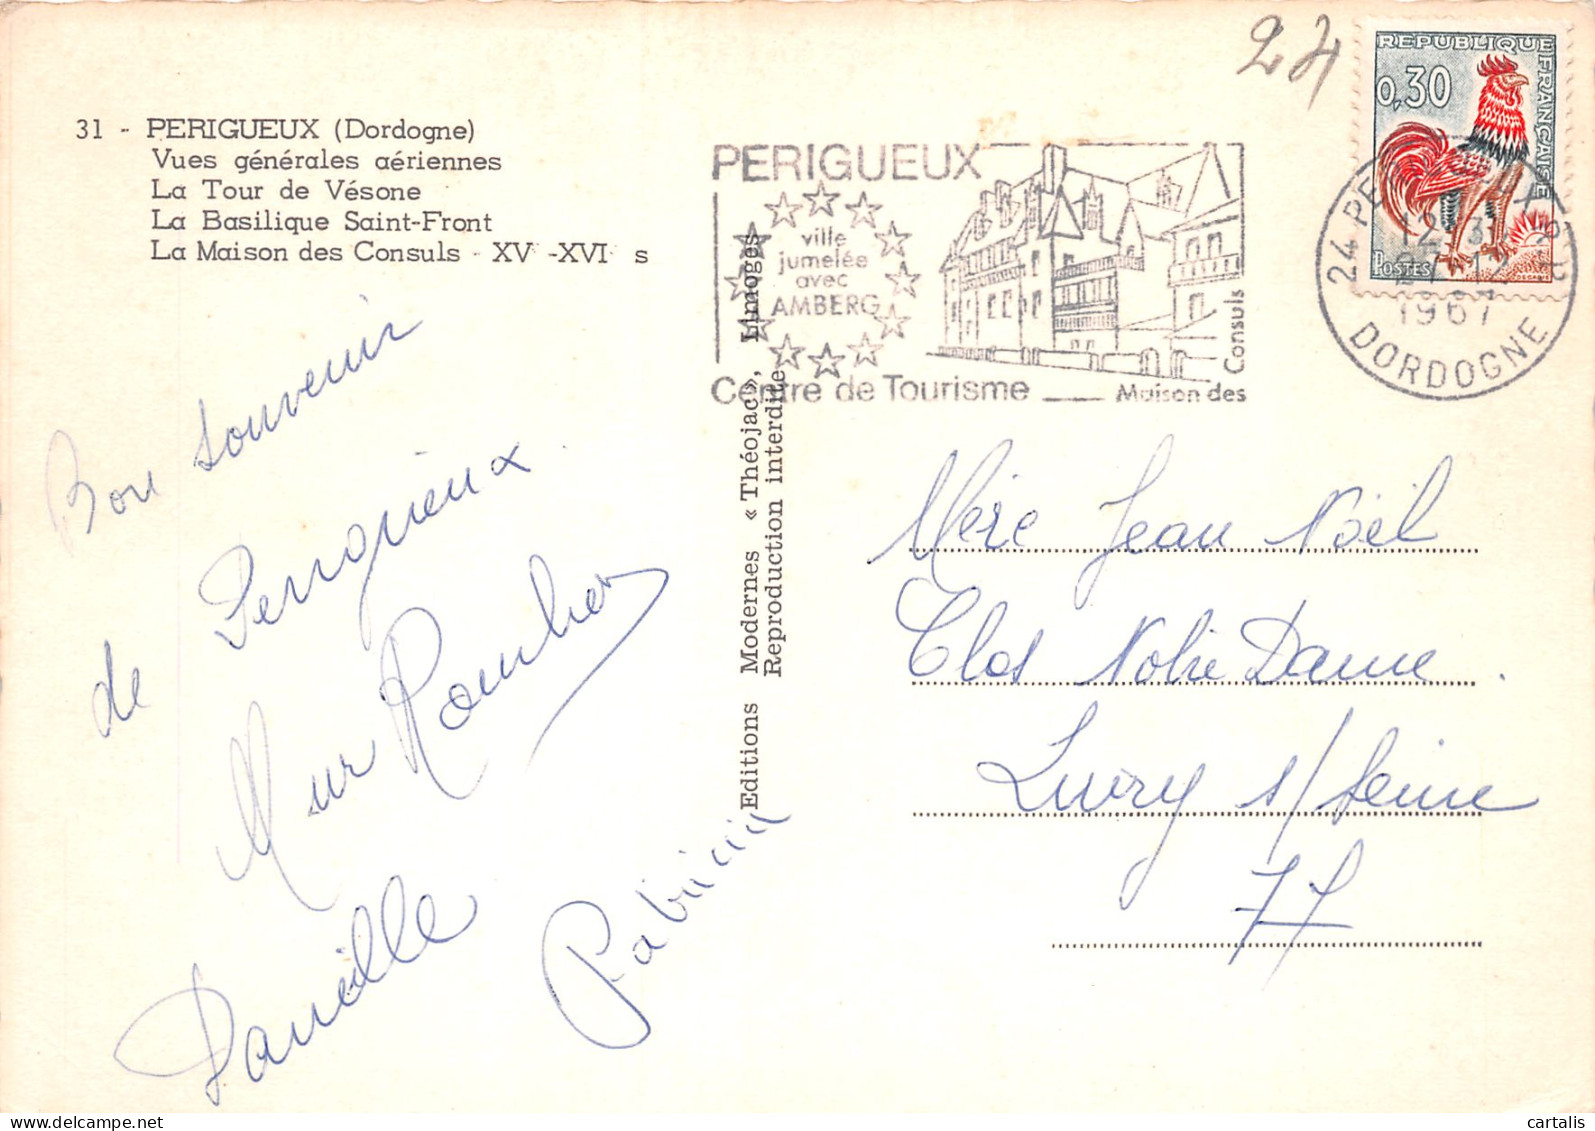 31 - PERIGUEUX (Dordogne)
Vues générales aériennes
La Tour de Vésone
La Basilique Saint-Front
La Maison des Consuls - XV -XVI s
24
REPUBLIQUE FRANÇAISE
0,30
POSTES
PERIGUEUX
ville
jumelée
avec
AMBERG
Centre de Tourisme
Maison des
Consuls
24 PE
DORDOGNE
1967
Editions Modernes « Théojac », Limoges
Reproduction interdite
Bon souvenir
de Perigueux
Danielle
Patricia
Mère Jean Noël
Clos Notre Dame
Livry s/ Seine
77
delcampe.net
cartalis